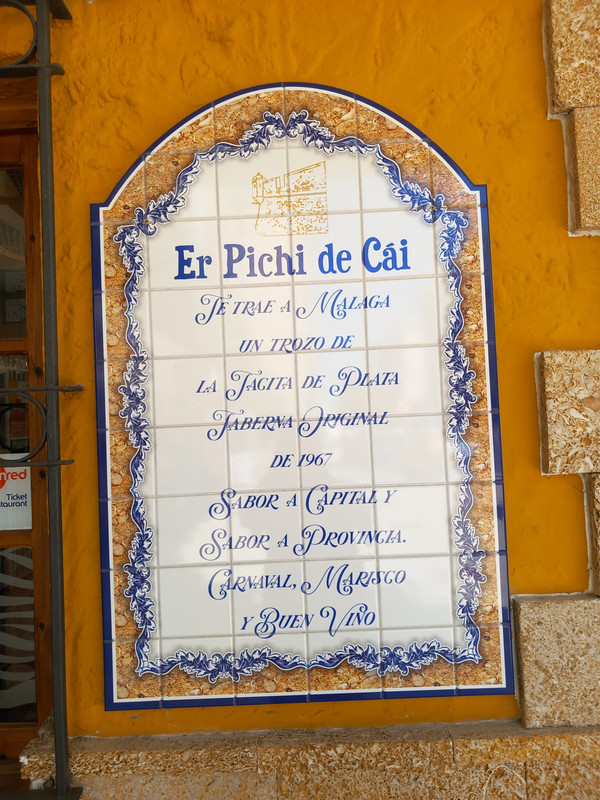 Er Pichi de Cái
TE TRAE A MALAGA
UN TROZO DE
LA TACITA DE PLATA
TABERNA ORIGINAL
DE 1967
SABOR A CAPITAL Y
SABOR A PROVINCIA.
CARNAVAL, MARISCO
Y BUEN VIÑO
red
Ticket
staurant